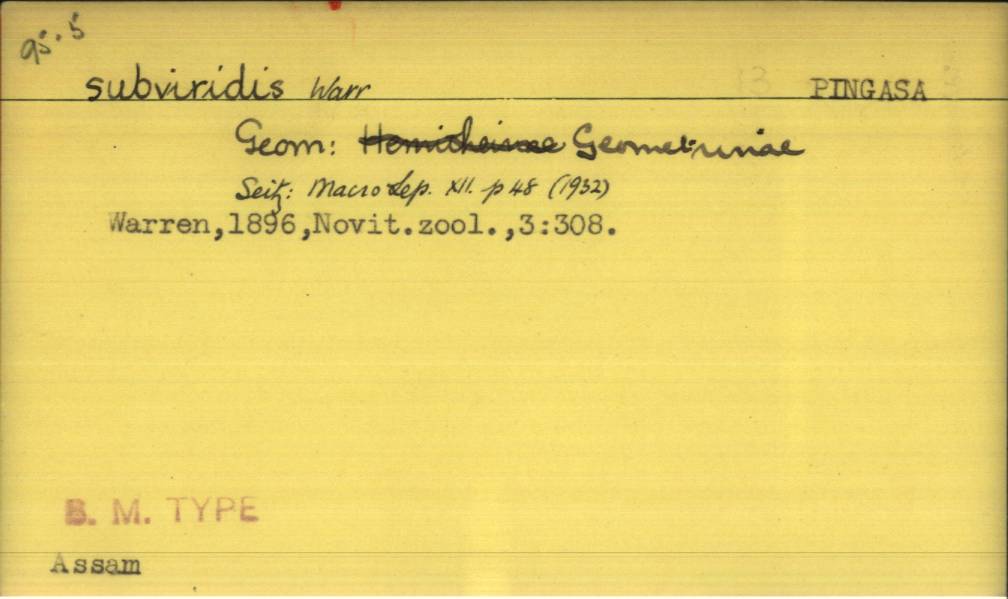 95.5
subviridis Warr PINGASA
Geom: Hemitheinae Geometrinae
Seitz: Macro Lep. XII. p 48 (1932)
Warren,1896,Novit.zool.,3:308.
B. M. TYPE
Assam